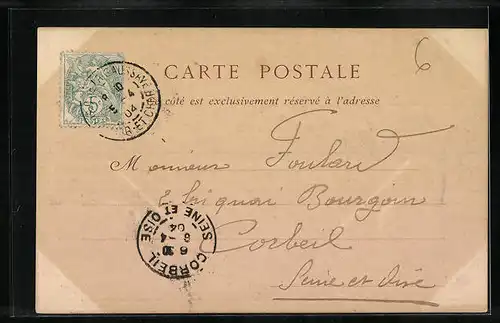 6
CARTE POSTALE
côté est exclusivement réservé à l'adresse
5
04
Monsieur Foulard
quai Bourgoin
Corbeil
Seine et Oise
CORBEIL
SEINE ET OISE
6 30
8 -4
04